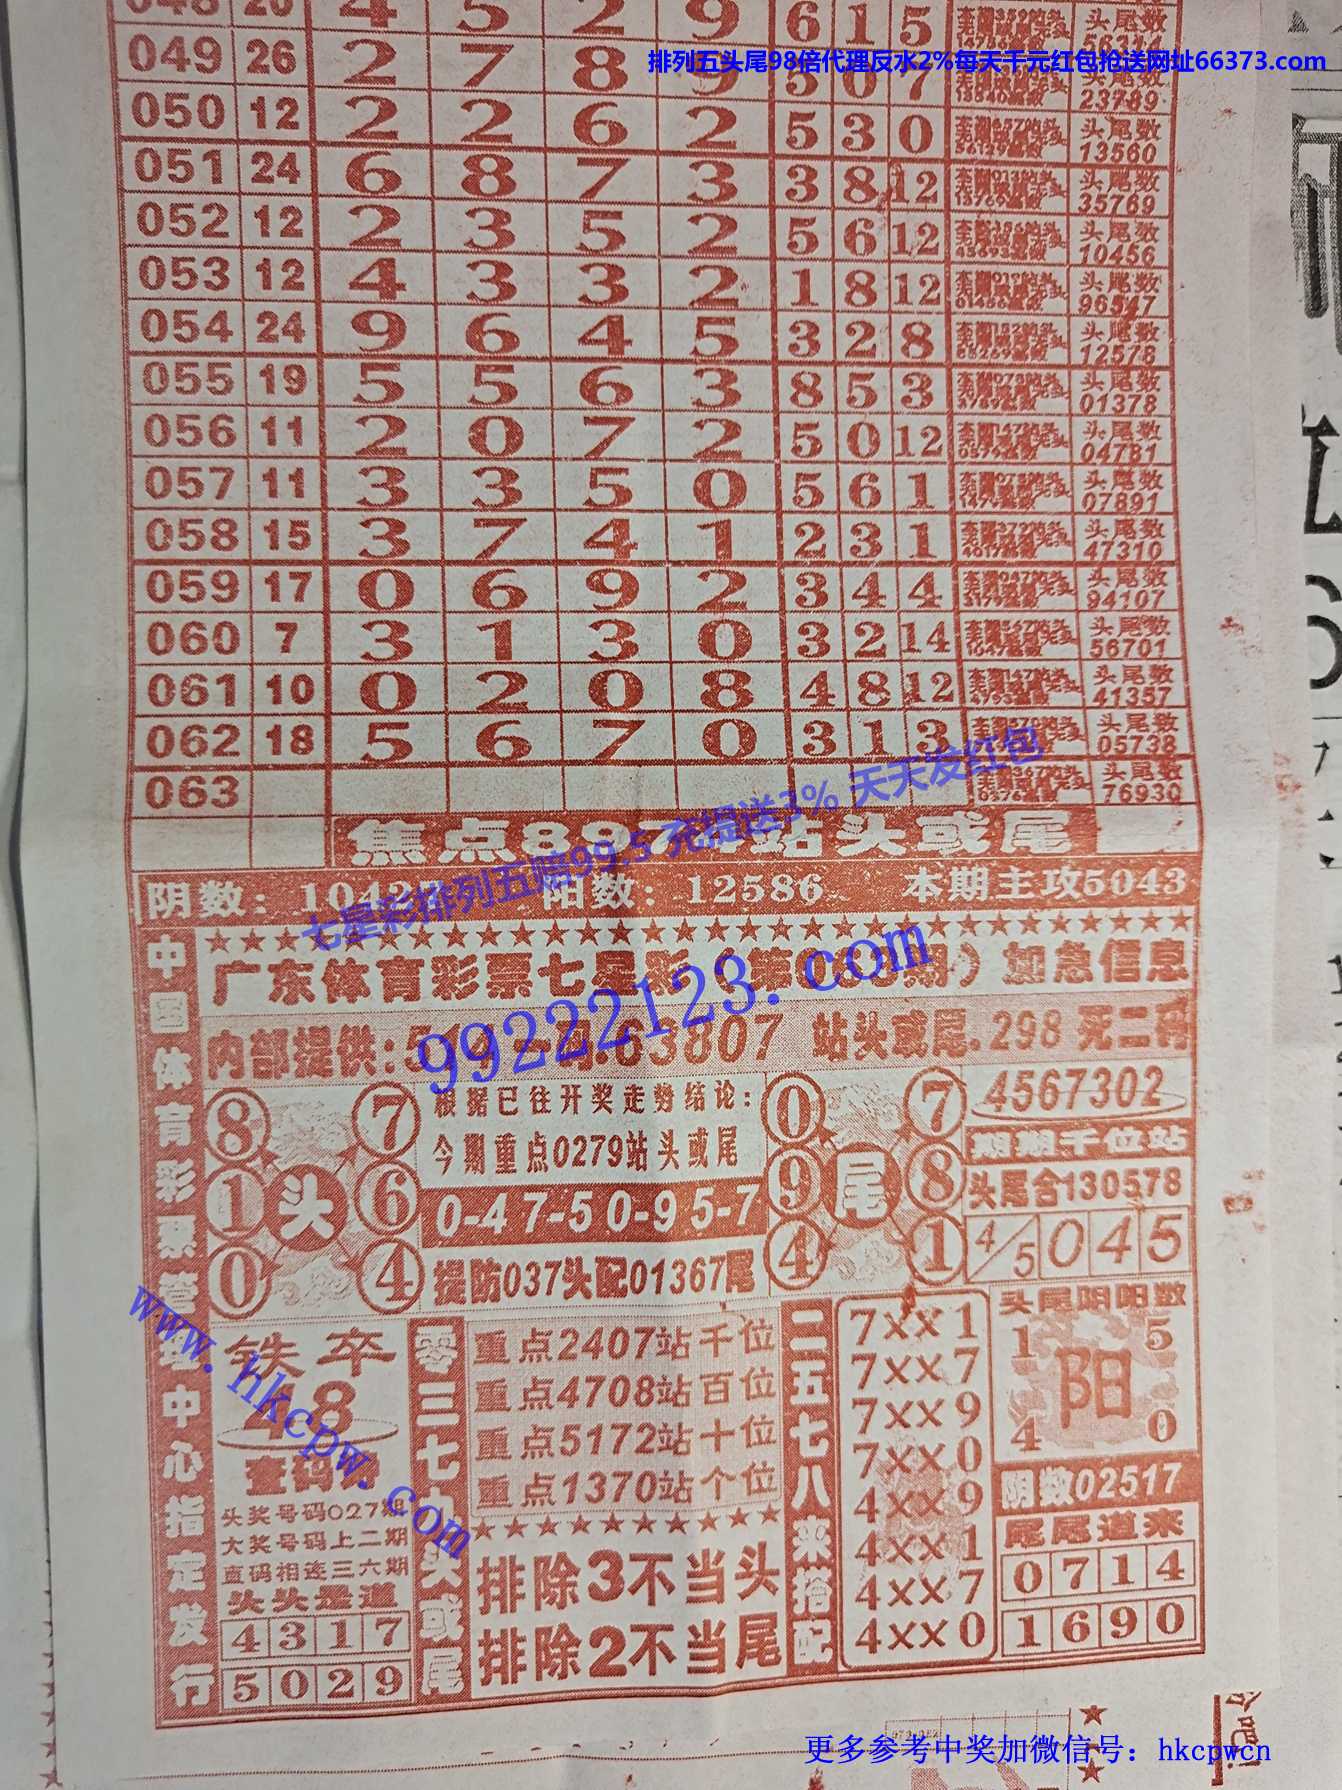 排列五头尾98倍代理反水2%每天千元红包抢送网址66373.com
048 20 4 5 2 9 6 1 5 头尾数
049 26 2 7 8 9 5 0 7 头尾数 23789
050 12 2 2 6 2 5 3 0 头尾数 13560
051 24 6 8 7 3 3 8 12 头尾数 35769
052 12 2 3 5 2 5 6 12 头尾数 10456
053 12 4 3 3 2 1 8 12 头尾数 96547
054 24 9 6 4 5 3 2 8 头尾数 12578
055 19 5 5 6 3 8 5 3 头尾数 01378
056 11 2 0 7 2 5 0 12 头尾数 04781
057 11 3 3 5 0 5 6 1 头尾数 07891
058 15 3 7 4 1 2 3 1 头尾数 47310
059 17 0 6 9 2 3 4 4 头尾数 94107
060 7 3 1 3 0 3 2 14 头尾数 56701
061 10 0 2 0 8 4 8 12 头尾数 41357
062 18 5 6 7 0 3 1 3 头尾数 05738
063 头尾数 76930
七星彩排列五赔99.5 充提送3% 天天发红包
焦点 站头或尾
阴数: 阳数: 12586 本期主攻5043
中国体育彩票管理中心指定发行
广东体育彩票七星彩 加急信息
99222123.com
内部提供: 63807 站头或尾. 298 死二码
8 7 1 头 6 0 4
根据已往开奖走势结论:
今期重点0279站头或尾
0-4 7-5 0-9 5-7
提防037头配01367尾
0 7 9 尾 8 4 1
4567302
期期千位站
头尾合130578
4/5 0 4 5
www.hkcpw.com
铁卒
48
查码
头奖号码027期
大奖号码上二期
直码相连三六期
头头是道
4 3 1 7
5 0 2 9
零三七九头或尾
重点2407站千位
重点4708站百位
重点5172站十位
重点1370站个位
排除3不当头
排除2不当尾
二五七八来搭配
7××1
7××7
7××9
7××0
4××9
4××1
4××7
4××0
头尾阴阳数
1 5
阳
4 0
阴数02517
尾尾道来
0 7 1 4
1 6 9 0
更多参考中奖加微信号: hkcpwcn